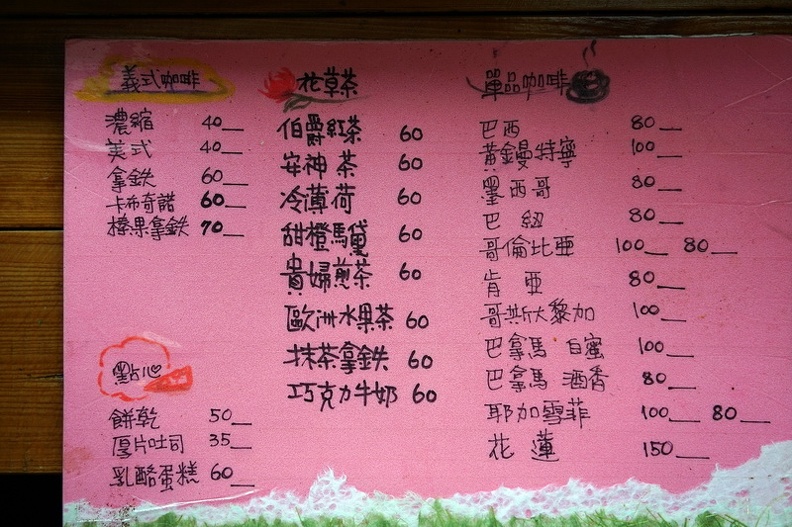 義式咖啡
濃縮 40
美式 40
拿鉄 60
卡布奇諾 60
榛果拿鉄 70
點心
餅乾 50
厚片吐司 35
乳酪蛋糕 60
花草茶
伯爵紅茶 60
安神茶 60
冷薄荷 60
甜橙馬黛 60
貴婦煎茶 60
歐洲水果茶 60
抹茶拿鉄 60
巧克力牛奶 60
單品咖啡
巴西 80
黃金曼特寧 100
墨西哥 80
巴紐 80
哥倫比亞 100 80
肯亞 80
哥斯大黎加 100
巴拿馬 白蜜 100
巴拿馬 酒香 80
耶加雪菲 100 80
花蓮 150